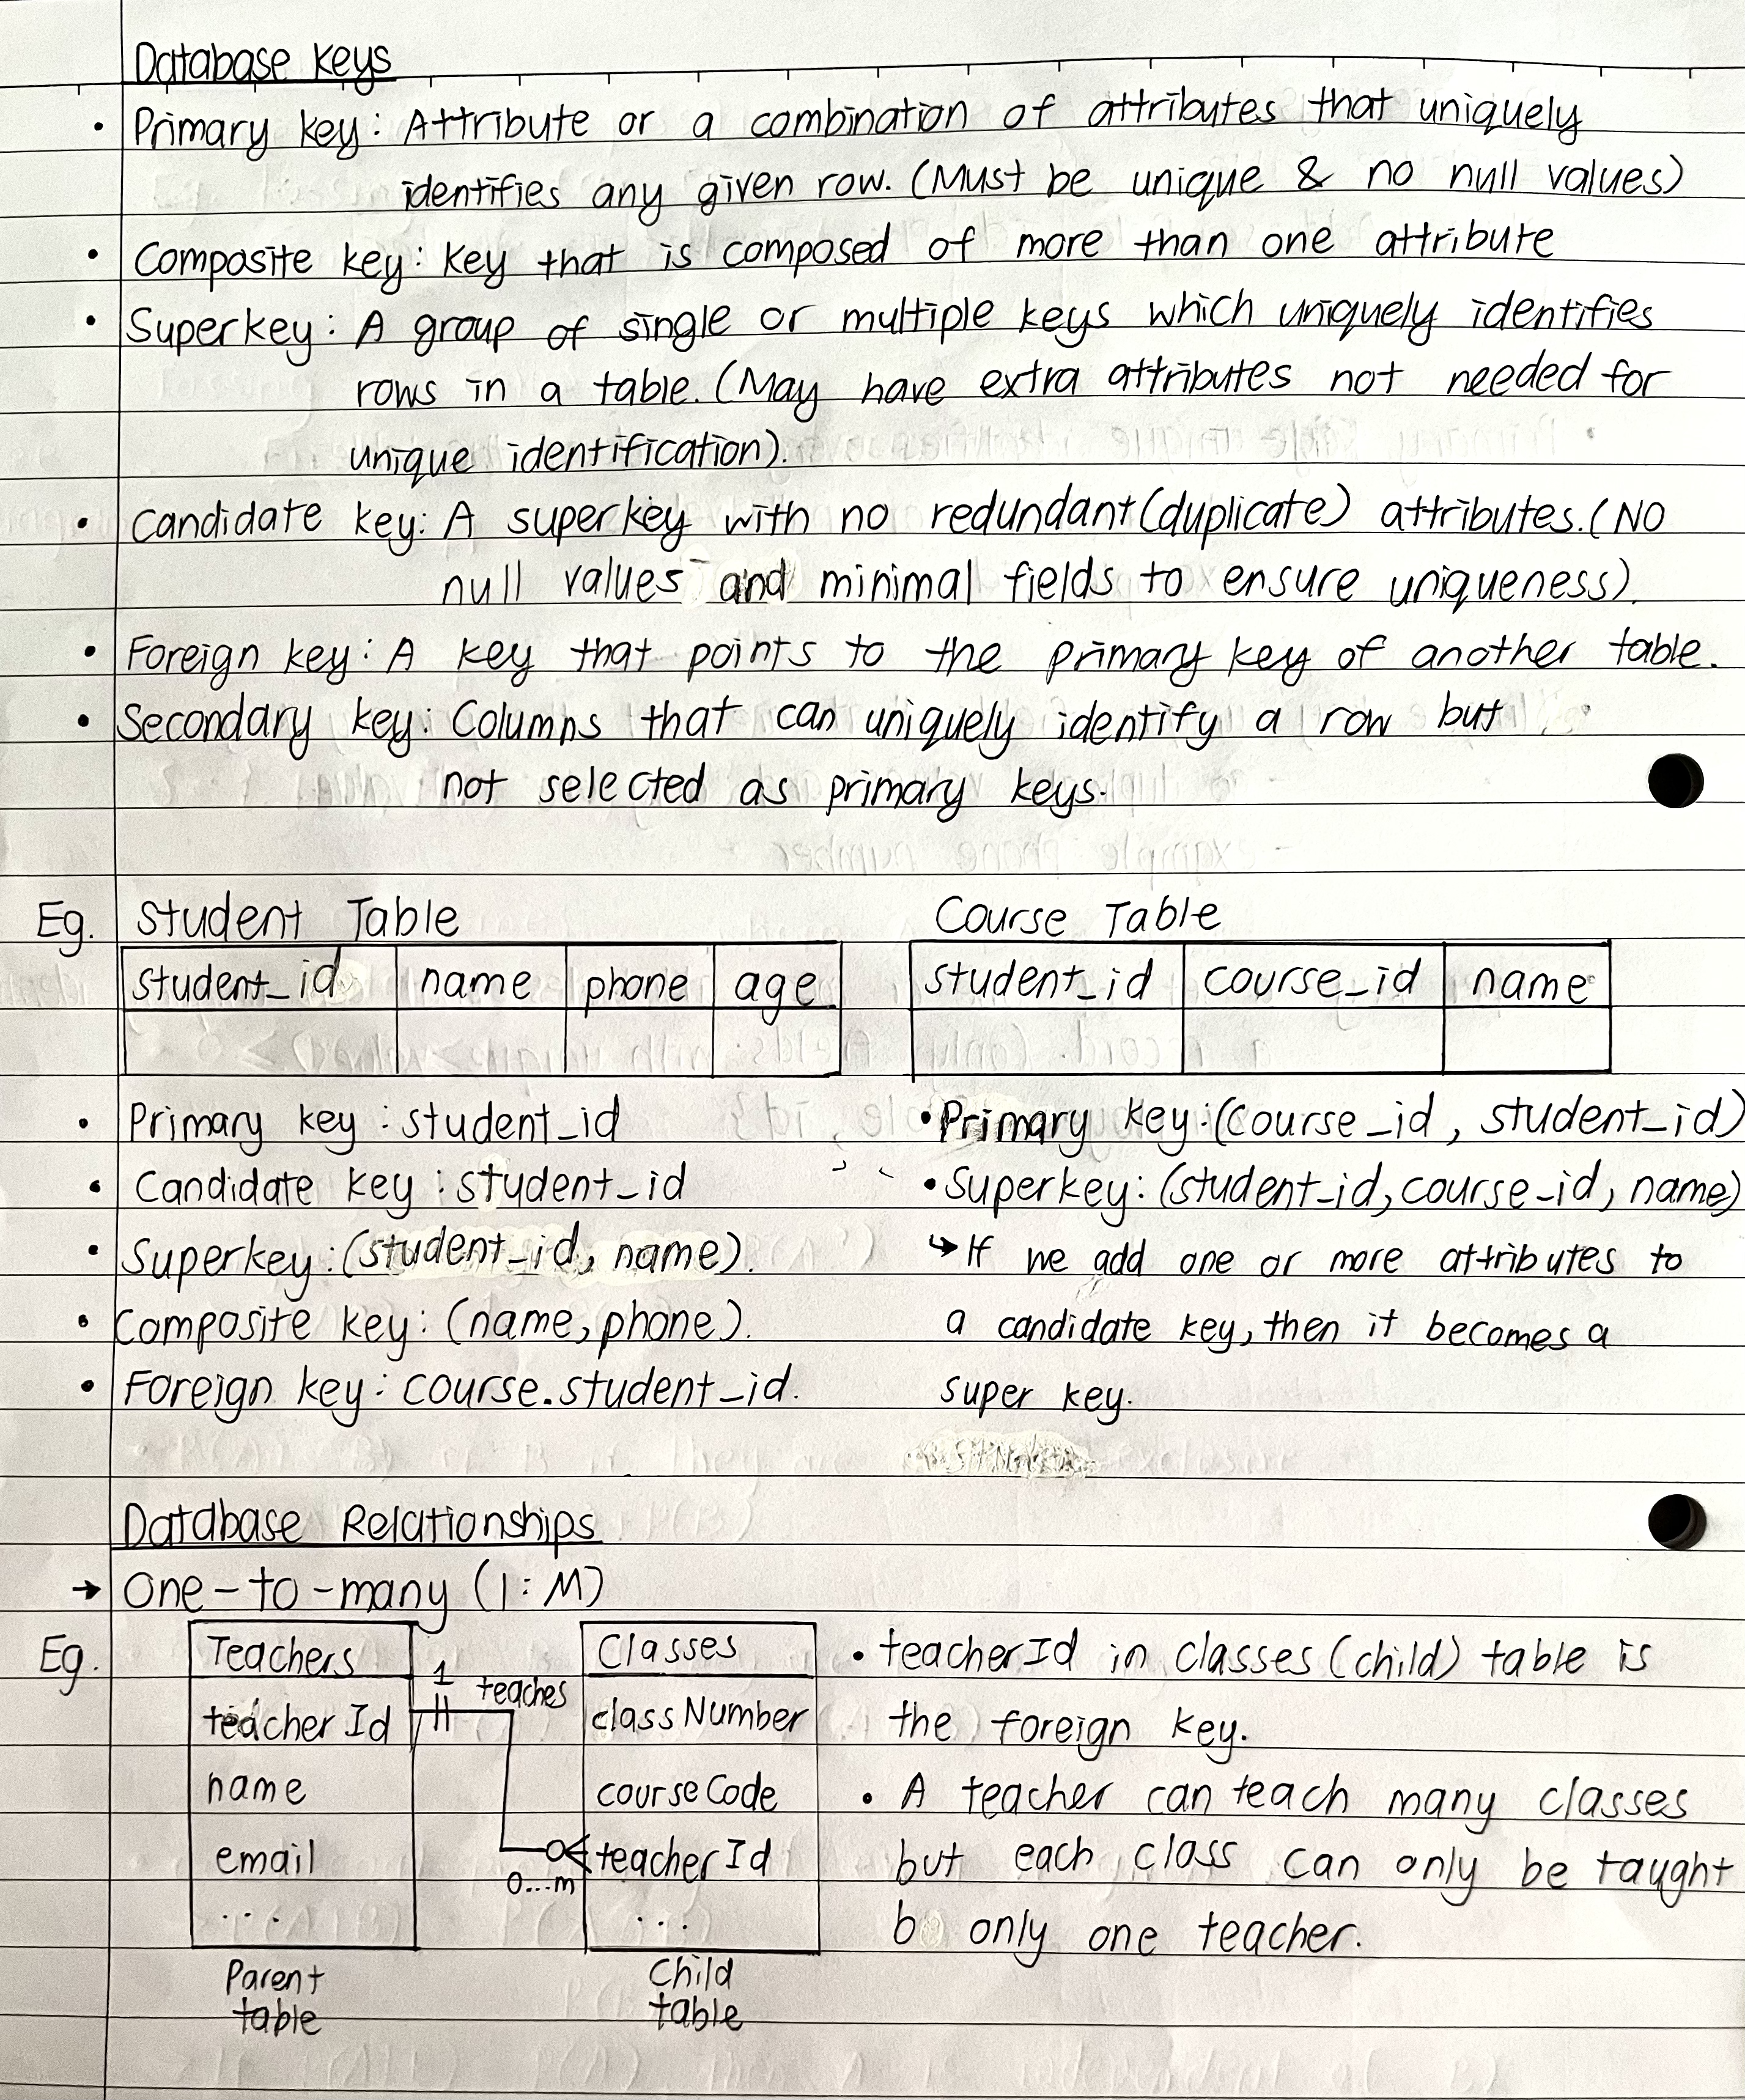 Database Keys
• Primary key: Attribute or a combination of attributes that uniquely
identifies any given row. (Must be unique & no null values)
• Composite key: Key that is composed of more than one attribute
• Superkey: A group of single or multiple keys which uniquely identifies
rows in a table. (May have extra attributes not needed for
unique identification).
• Candidate key: A superkey with no redundant (duplicate) attributes. (No
null values and minimal fields to ensure uniqueness).
• Foreign key: A key that points to the primary key of another table.
• Secondary key: Columns that can uniquely identify a row but
not selected as primary keys.
Eg. Student Table
student_id name phone age
• Primary key: student_id
• Candidate key: student_id
• Superkey: (student_id, name).
• Composite key: (name, phone).
• Foreign key: course.student_id.
Course Table
student_id course_id name
• Primary key: (course_id, student_id)
• Superkey: (student_id, course_id, name)
↳ If we add one or more attributes to
a candidate key, then it becomes a
super key.
Database Relationships
→ One-to-many (1:M)
Eg.
Teachers
teacherId
name
email
...
Parent
table
1
teaches
0...m
Classes
classNumber
courseCode
teacherId
...
Child
table
• teacherId in classes (child) table is
the foreign key.
• A teacher can teach many classes
but each class can only be taught
b only one teacher.